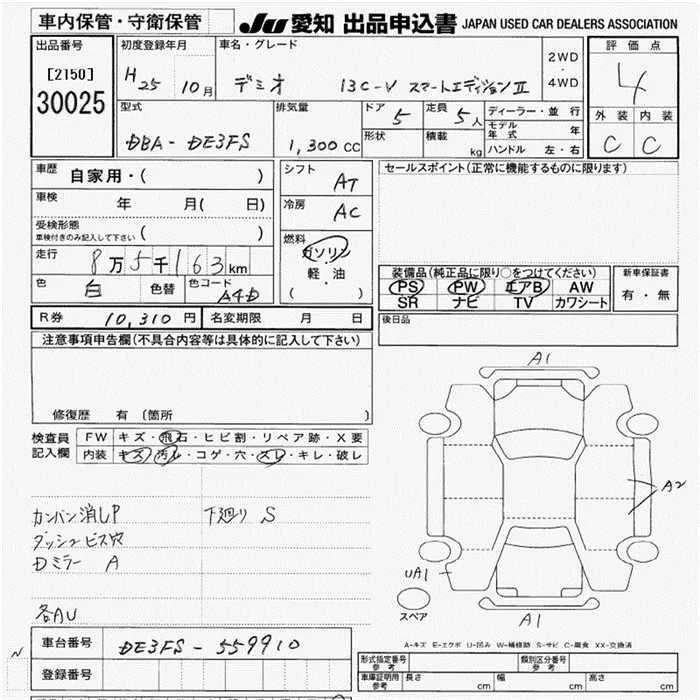 車内保管・守衛保管
JU 愛知 出品申込書 JAPAN USED CAR DEALERS ASSOCIATION
出品番号
[2150]
30025
初度登録年月
H25 10月
車名・グレード
デミオ 13C-V スマートエディションⅡ
2WD
・
4WD
評価点
4
外装 内装
C C
型式
DBA-DE3FS
排気量
1,300 cc
ドア 5
形状
定員 5人
積載 kg
ディーラー・並行
モデル年式 年
ハンドル 左・右
車歴 自家用・( )
車検 年 月( 日)
受検形態
車検付きのみ記入して下さい ( )
走行 8万5千163km
色 白 色替 色コード A4D
シフト AT
冷房 AC
燃料
ガソリン
軽・油
( )
セールスポイント(正常に機能するものに限ります)
装備品(純正品に限り○をつけてください)
PS PW エアB AW
SR ナビ TV カワシート
新車保証書
有・無
後日品
R券 10,310円 名変期限 月 日
注意事項申告欄(不具合内容等は具体的に記入して下さい)
修復歴 有 〔箇所 〕
検査員記入欄
FW キズ・飛石・ヒビ割・リペア跡・X要
内装 キズ・汚レ・コゲ・穴・スレ・キレ・破レ
カンバン消しP 下廻り S
ダッシュビス穴
Dミラー A
各AU
A1
A2
UA1
スペア
A1
A-キズ E-エクボ U-凹み W-補修跡 S-サビ C-腐食 XX-交換済
N
車台番号 DE3FS-559910
登録番号
形式指定番号 参考
類別区分番号 参考
車庫証明用 参考 長さ cm 幅 cm 高さ cm